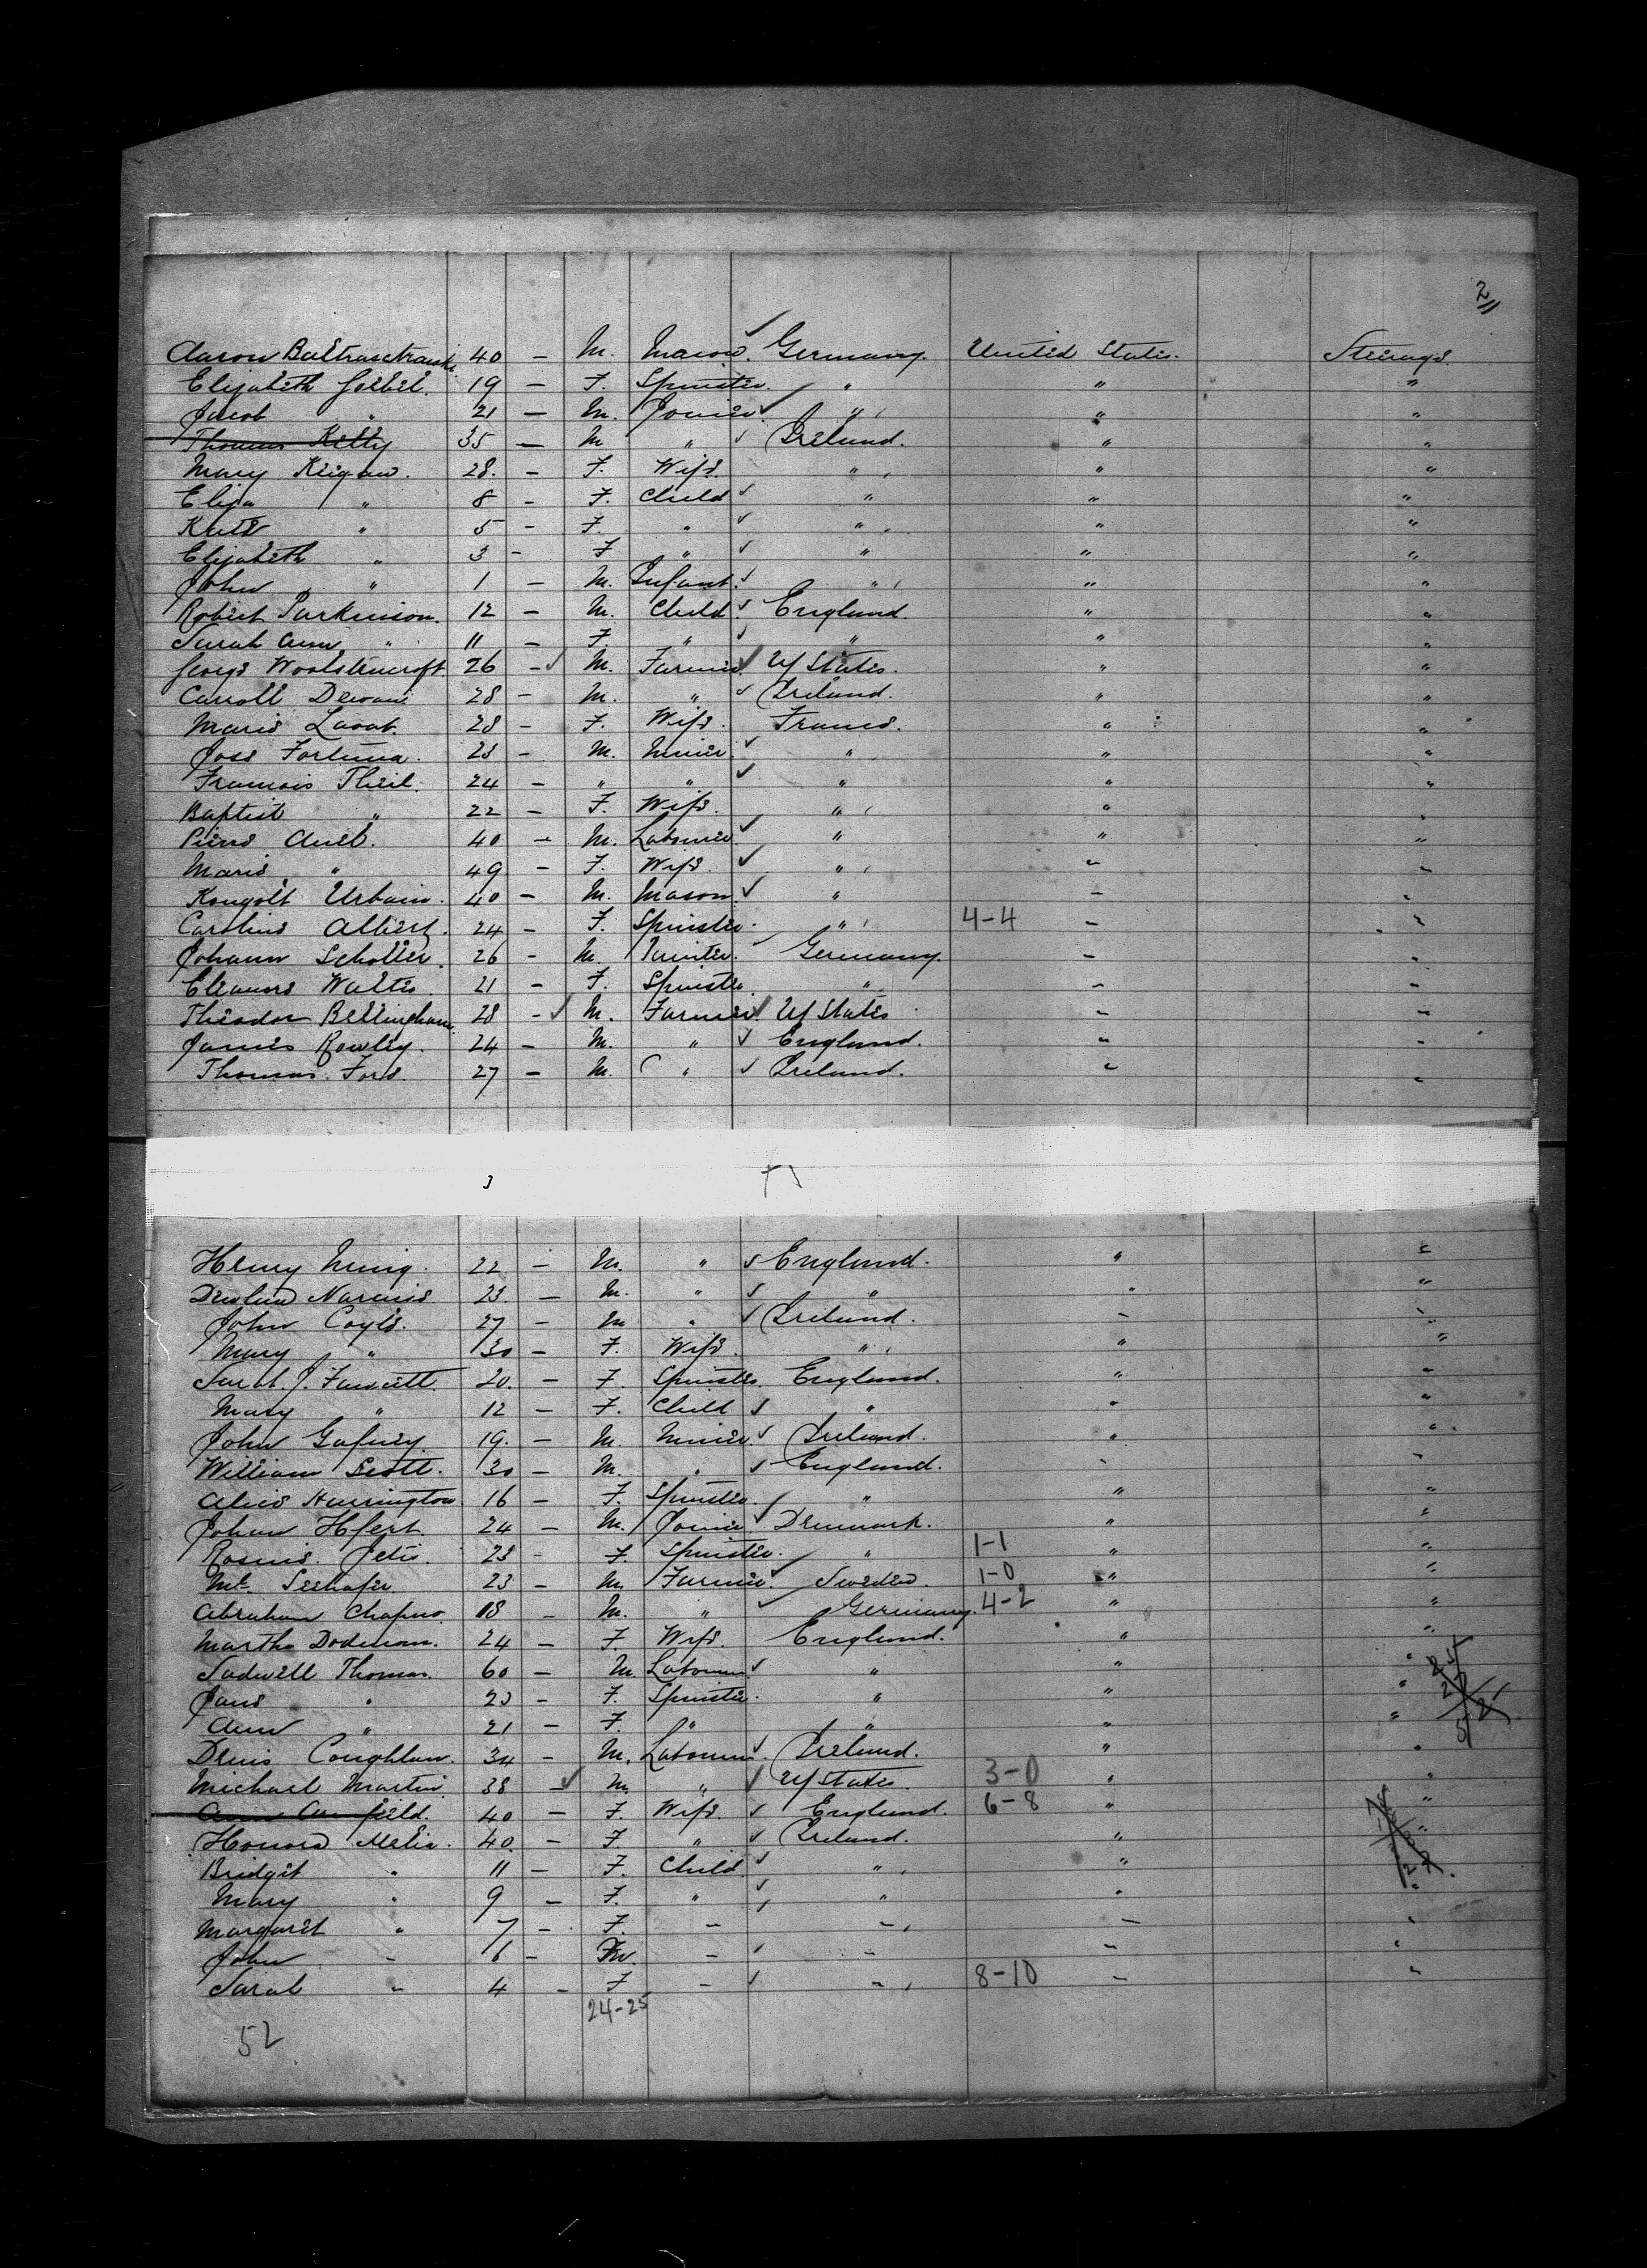 2
Aaron 40 – M. Mason. Germany. United States. Steerage
Elizabeth Goebel. 19 – F. Spinster. " " "
Jacob " 21 – M. Joiner " " "
Thomas Kelly 35 – M " Ireland. " "
Mary Keigan. 28. – F. Wife " " "
Eliza " 8 – F. Child " " "
Kate " 5 – F. " " " "
Elizabeth " 3 – F " " " "
John " 1 – M. Infant. " " "
Robert Parkinson. 12 – M. Child England. " "
Sarah Ann " 11 – F. " " " "
George Woolstencroft 26 – M. Farmer. U States. " "
Carroll 28 – M. " Ireland. " "
Marie 28 – F. Wife. France. " "
Jose Fortuna. 23 – M. Miner. " " "
Francois Theil. 24 – " " " " "
Baptist " 22 – F. Wife. " " "
Pierre 40 – M. Labourer " " "
Marie " 49 – F. Wife. " " "
Urbain. 40 – M. Mason. " " "
Caroline Albert. 24 – F. Spinster. " 4-4 " "
Johann Scholler. 26 – M. Germany. " "
Eleanore Walter 21 – F. Spinster " " "
Theodor Bellingham. 28 – M. Farmer. U States " "
James Rowley. 24 – M. " England. " "
Thomas Ford. 27 – M. " Ireland. " "
3
Henry 22 – M. " England. " "
Narcise 23. – M. " " " "
John Coyle. 27 – M " Ireland. " "
Mary " 30 – F. Wife. " " "
Sarah J. Fawcett. 20. – F. Spinster. England. " "
Mary " 12 – F. Child " " "
John Gafney. 19. – M. Miner. Ireland. " "
William Scott. 30 – M. " England. " "
Alice Harrington. 16 – F. Spinster. " " "
Johan 24 – M. Joiner Denmark. " "
23 – F. Spinster. " 1-1 " "
23 – M. Farmer. Sweden. 1-0 " "
Abraham 18 – M. " Germany. 4-2 " "
Martha Dodman. 24 – F. Wife. England. " "
Thomas. 60 – M. Labourer " " "
Jane " 23 – F. Spinster. " " "
Ann " 21 – F. " " " "
Denis Coughlan. 34 – M. Labourer. Ireland. " "
Michael Martin. 38 – M. " U States. 3-0 " "
Ann 40 – F. Wife. England. 6-8 " "
Honora Melia. 40. – F. " Ireland. " "
Bridget " 11 – F. Child " " "
Mary " 9 – F. " " " "
Margaret " 7 – F. " " " "
John " 6 – M. " " " "
Sarah " 4 – F " " 8-10 " "
24-25
52